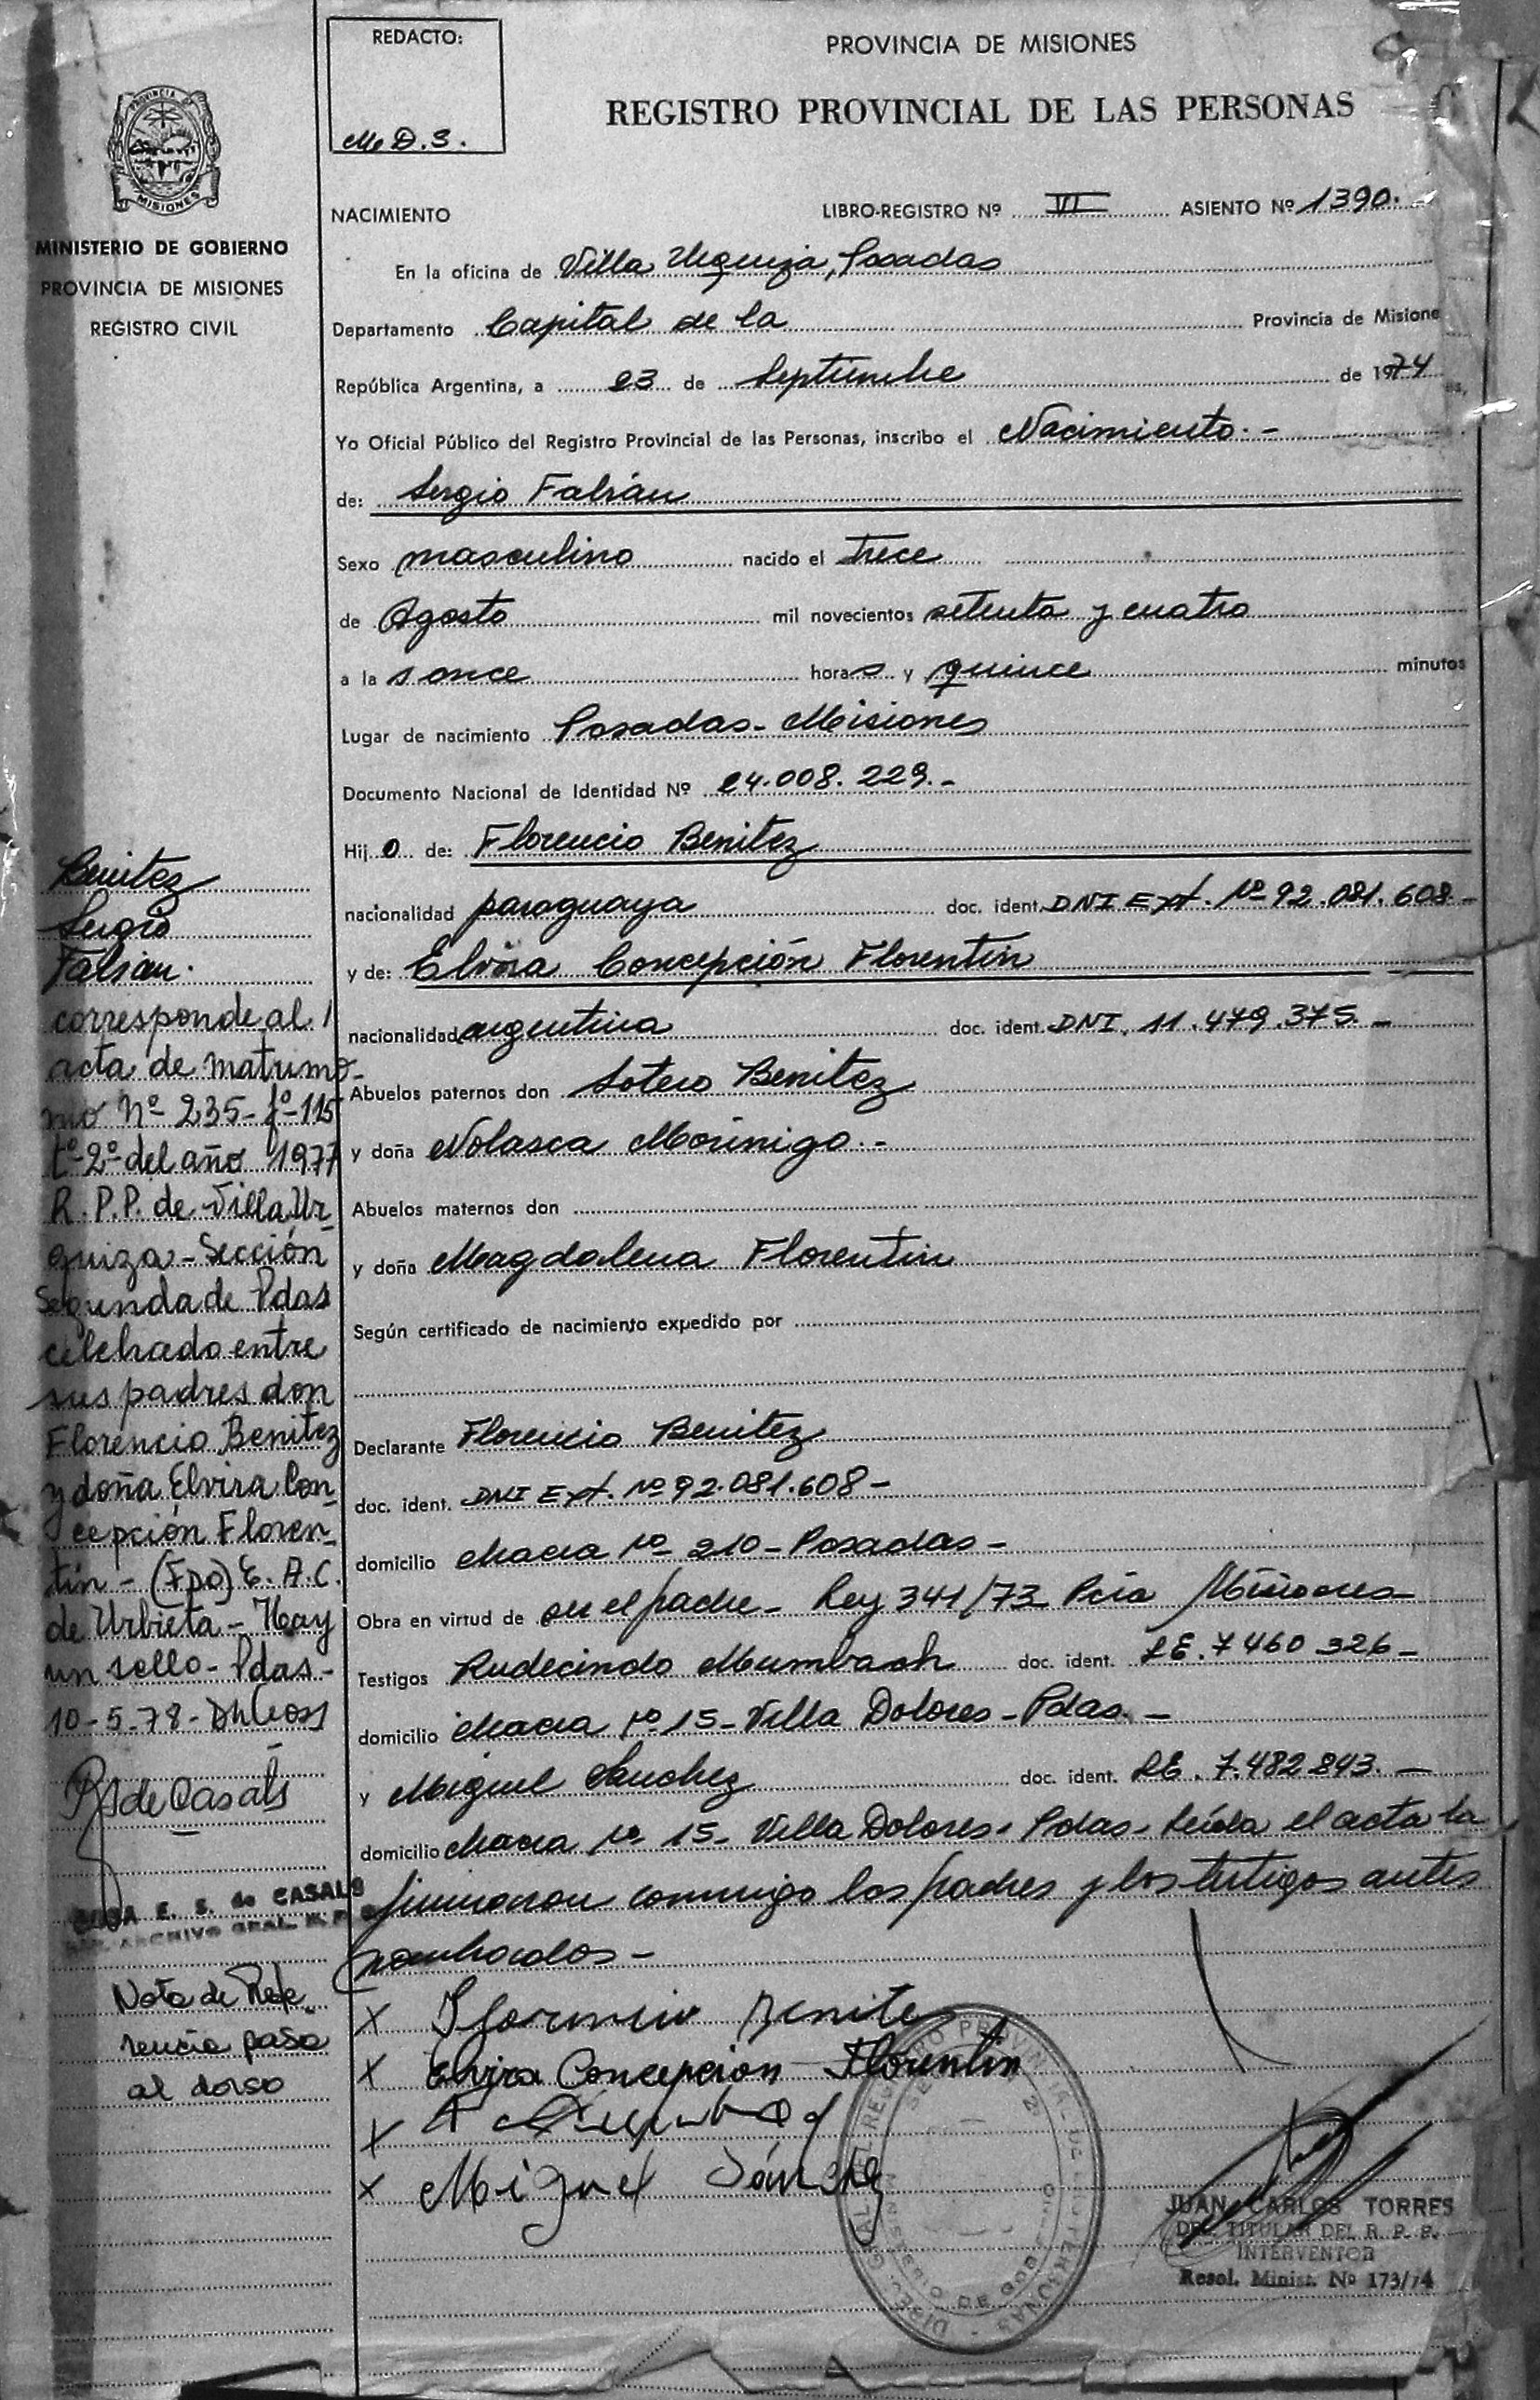 REDACTO:
M.D.S.
PROVINCIA DE MISIONES
REGISTRO PROVINCIAL DE LAS PERSONAS
PROVINCIA DE
MISIONES
MINISTERIO DE GOBIERNO
PROVINCIA DE MISIONES
REGISTRO CIVIL
NACIMIENTO
LIBRO-REGISTRO Nº VI ASIENTO Nº 1390.
En la oficina de Villa Urquiza, Posadas
Departamento Capital de la Provincia de Misiones,
República Argentina, a 23 de Septiembre de 1974
Yo Oficial Público del Registro Provincial de las Personas, inscribo el Nacimiento.-
de: Sergio Fabián
Sexo masculino nacido el trece
de Agosto mil novecientos setenta y cuatro
a la s once horas y quince minutos
Lugar de nacimiento Posadas- Misiones
Documento Nacional de Identidad Nº 24.008.229.-
Hijo de: Florencio Benitez
nacionalidad paraguaya doc. ident. DNI Ext. Nº 92.081.608-
y de: Elvira Concepción Florentin
nacionalidad argentina doc. ident. DNI. 11.479.375.-
Abuelos paternos don Sotero Benitez
y doña Nolasca Morinigo.-
Abuelos maternos don
y doña Magdalena Florentin
Según certificado de nacimiento expedido por
Declarante Florencio Benitez
doc. ident. DNI Ext. Nº 92.081.608-
domicilio chacra Nº 210-Posadas-
Obra en virtud de ser el padre- Ley 341/73 Pcia Misiones
Testigos Rudecindo Mumbach doc. ident. LE. 7460326-
domicilio chacra Nº 15-Villa Dolores-Pdas.-
y Miguel Sanchez doc. ident. LE. 7.482843.-
domicilio chacra Nº 15- Villa Dolores- Pdas- Leída el acta la
firmaron conmigo los padres y los testigos antes
nombrados-
X Florencio Benite
X Elvira Concepcion Florentin
X
X Miguel Sánchez
JUAN CARLOS TORRES
DEL. TITULAR DEL R. P. P.
INTERVENTOR
Resol. Minist. Nº 173/74
Benitez
Sergio
Fabian.
corresponde al
acta de matrimo-
nio Nº 235-fº-115
tº-2º del año 1977
R.P.P. de Villa Ur-
quiza-Sección
Segunda de Pdas
celebrado entre
sus padres don
Florencio Benitez
y doña Elvira Con-
cepción Floren-
tín-(Fdo) E.A.C.
de Urbieta-Hay
un sello-Pdas-
10-5-78-
de Casals
E. S. de CASALS
ARCHIVO GRAL.
Nota de Refe-
rencia pasa
al dorso